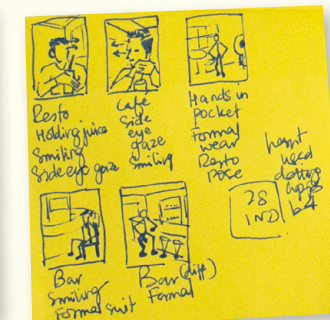 Resto
Holding juice
Smiling
Side eye gaze
Cafe
Side
eye
gaze
Smiling
Hands in
pocket
Formal
wear
Resto
pose
hasn't
used
dating
apps
28
IND
Bar
Smiling
Formal suit
Bar (diff)
Formal